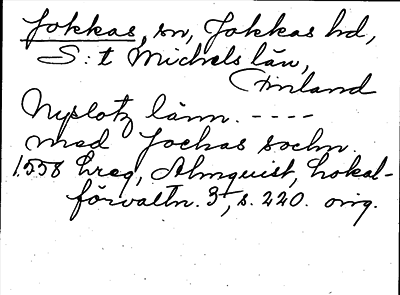 Jokkas, sn, Jokkas hd,
S:t Michels län,
Finland
Nyslotz länn. ----
med Jockas sochn.
1558 hreg, Almquist, Lokal-
förvaltn. 3, s. 220. orig.